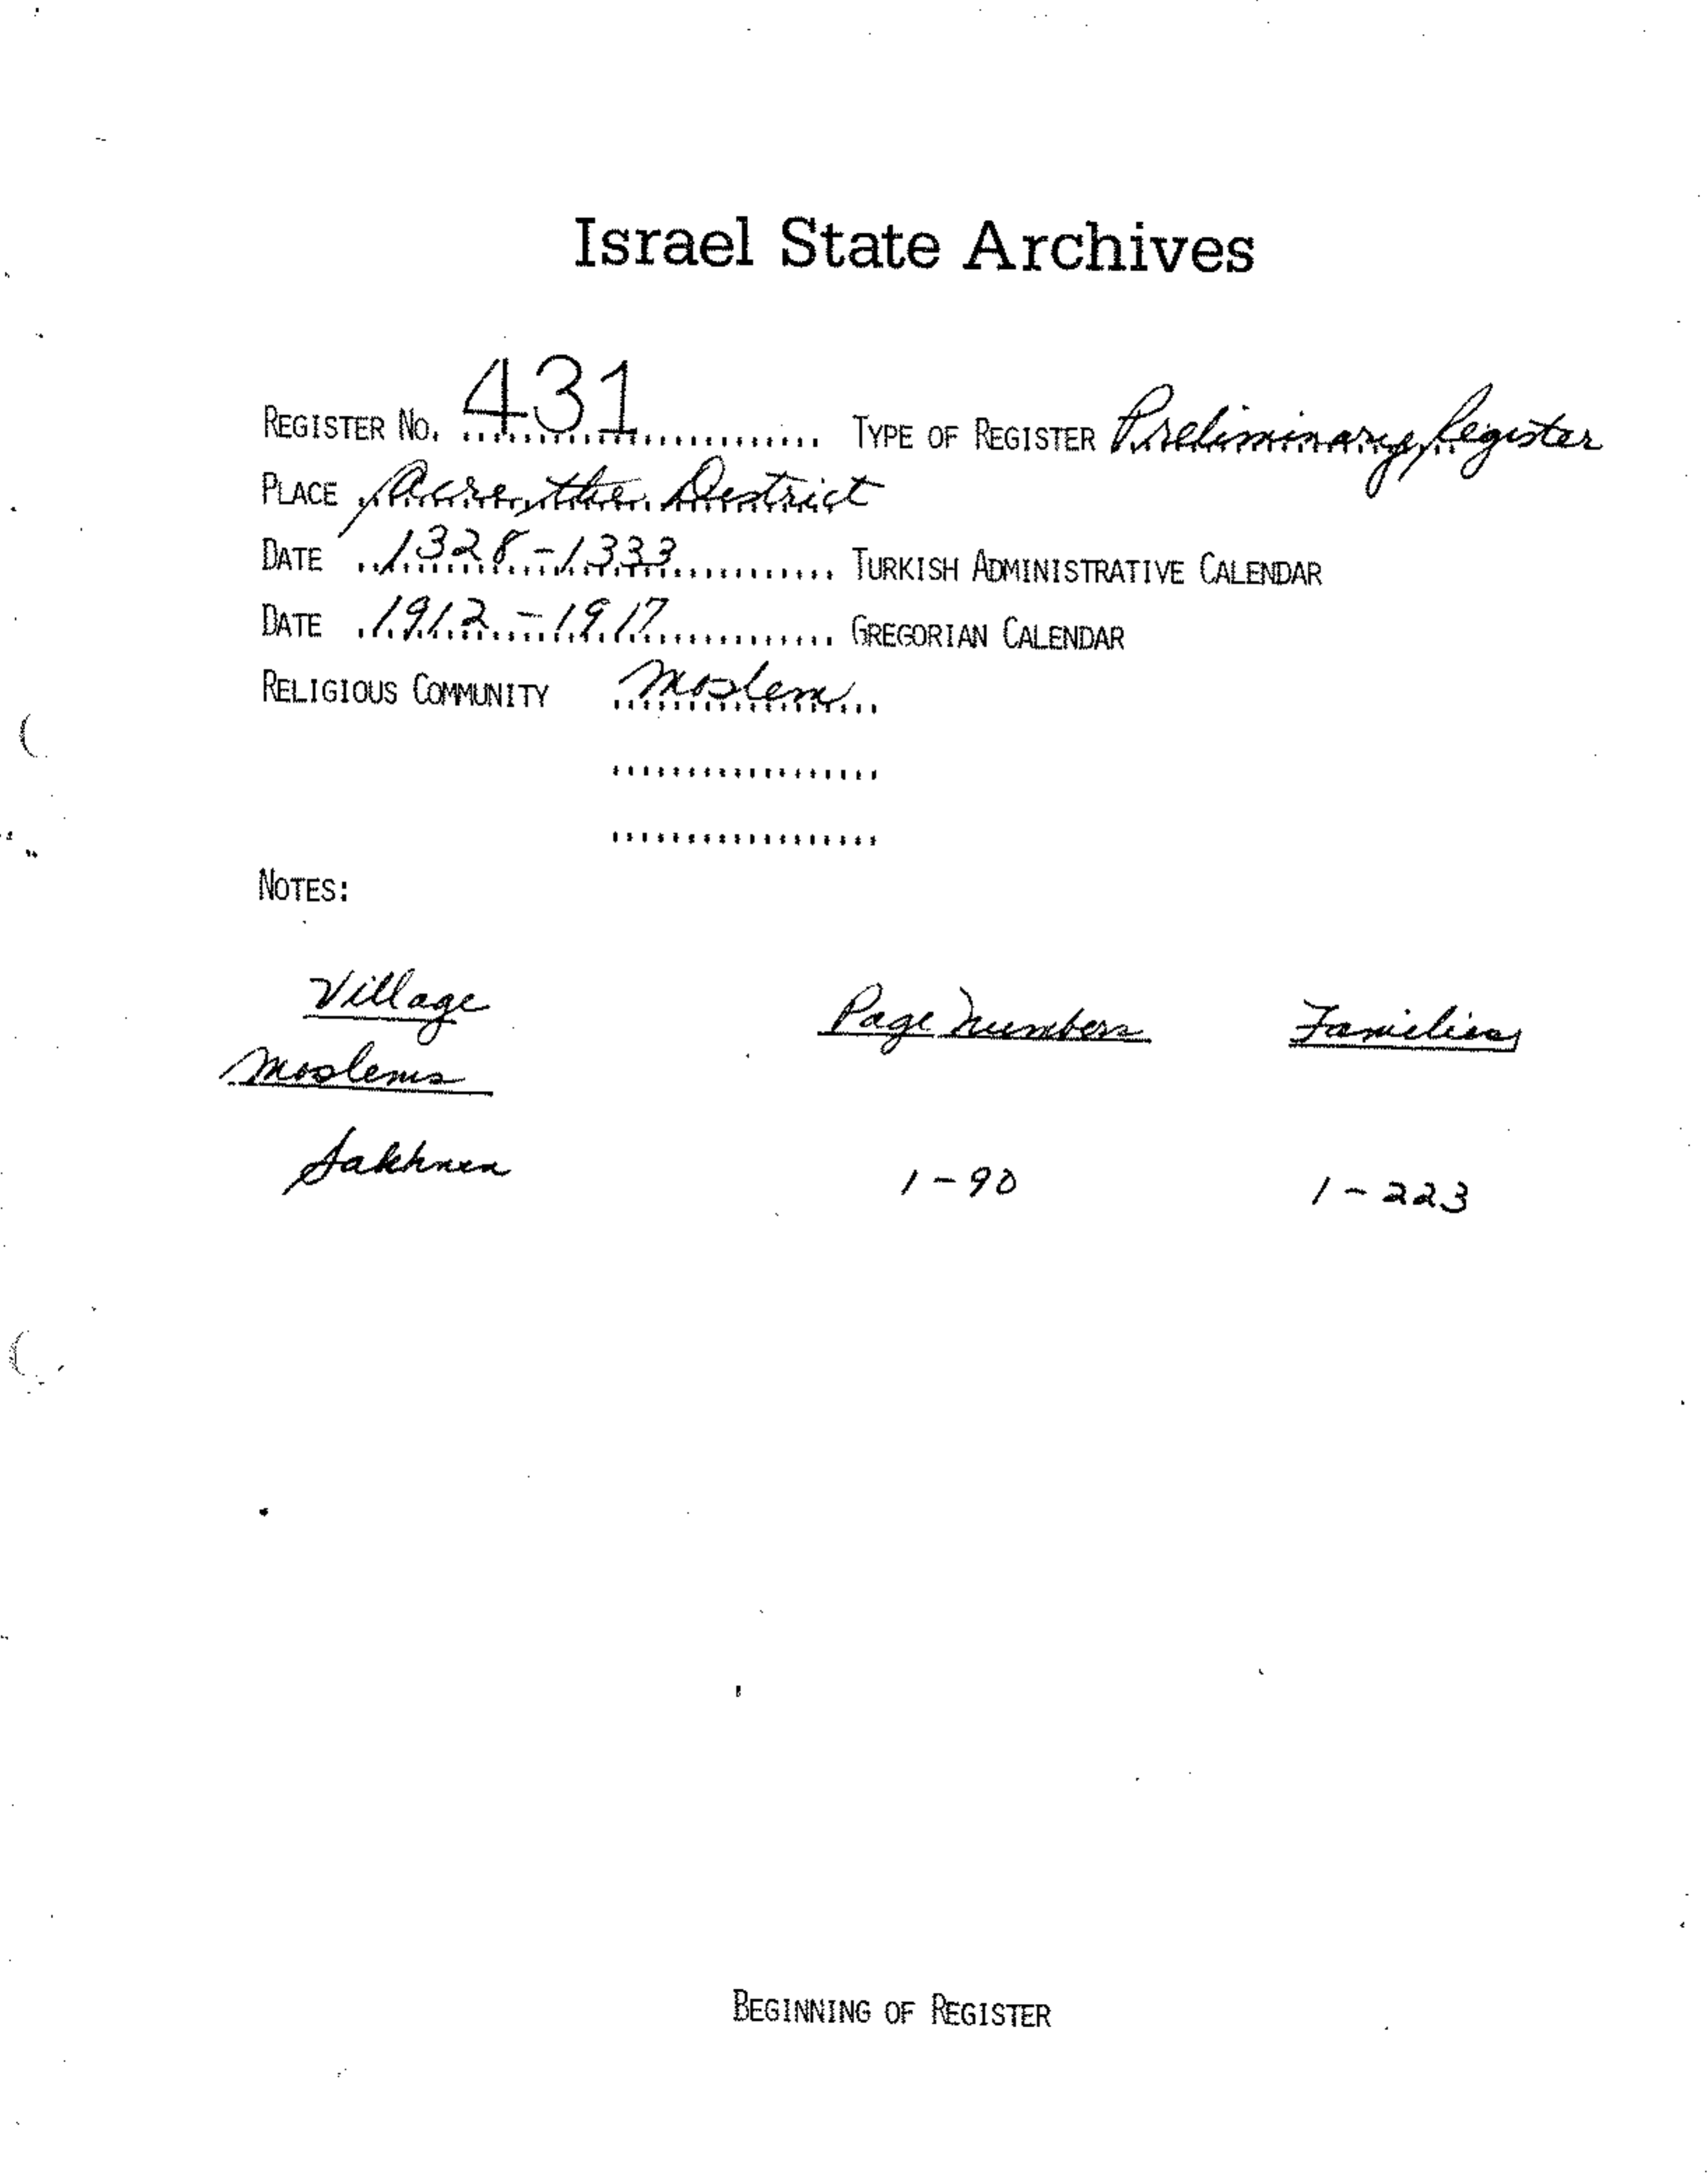 Israel State Archives
REGISTER NO. 431 TYPE OF REGISTER Preliminary Register
PLACE Acre, the District
DATE 1328-1333 TURKISH ADMINISTRATIVE CALENDAR
DATE 1912-1917 GREGORIAN CALENDAR
RELIGIOUS COMMUNITY Moslem
NOTES:
Village Page Numbers Families
Moslems
Sakhnen 1-90 1-223
BEGINNING OF REGISTER